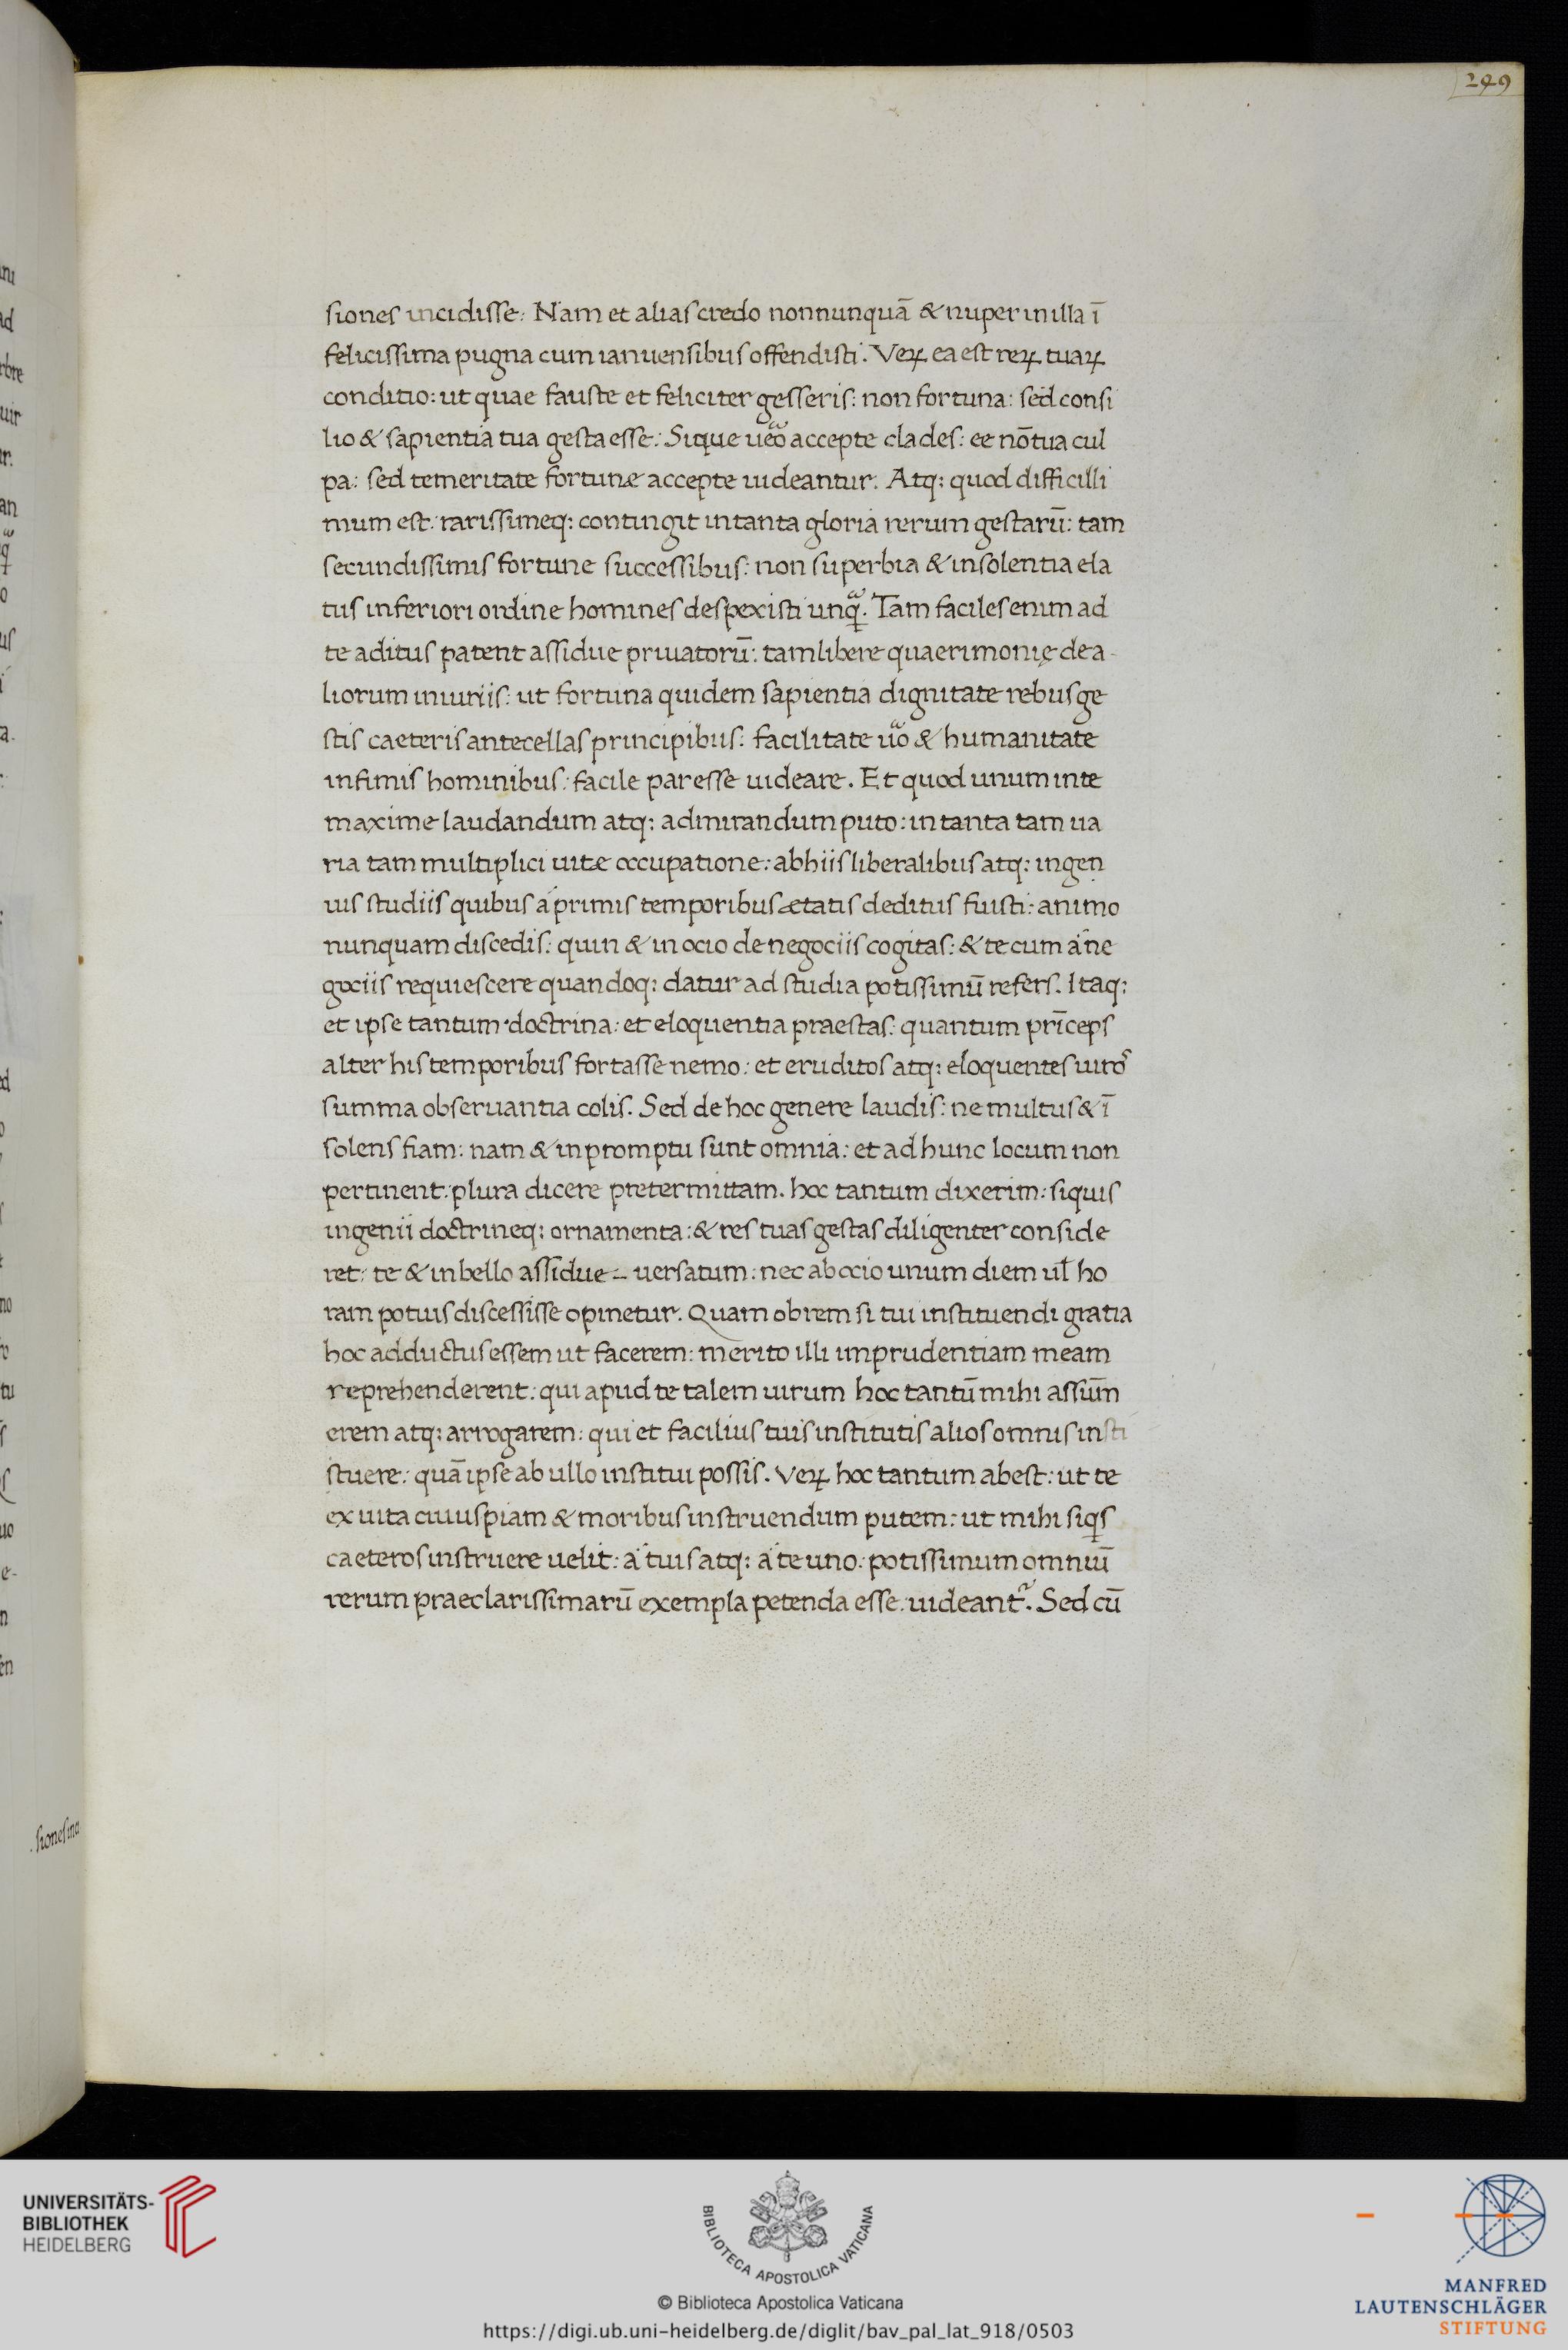 249
siones incidisse: Nam et alias credo nonnunquā & nuper in illa ī
felicissima pugna cum ianuensibus offendisti. Veꝝ ea est reꝝ tuaꝝ
conditio: ut quae fauste et feliciter gesseris: non fortuna: sed consi
lio & sapientia tua gesta esse: Sique ueo accepte clades: ee nō tua cul
pa: sed temeritate fortunæ accepte uideantur. Atq: quod difficilli
mum est: rarissimeq: contingit in tanta gloria rerum gestarū: tam
secundissimis fortune successibus: non superbia & insolentia ela
tus inferiori ordine homines despexisti unqᷓ. Tam faciles enim ad
te aditus patent assidue priuatorū: tam libere quaerimonię de a-
liorum iniuriis: ut fortuna quidem sapientia dignitate rebus ge
stis caeteris antecellas principibus: facilitate uo & humanitate
infimis hominibus: facile par esse uideare. Et quod unum in te
maxime laudandum atq: admirandum puto: in tanta tam ua
ria tam multiplici uitæ occupatione: ab hiis liberalibus atq: ingen
uis studiis quibus a primis temporibus ætatis deditus fuisti: animo
nunquam discedis: quin & in ocio de negociis cogitas: & te cum a ne
gociis requiescere quandoq: datur ad studia potissimū refers. Itaq:
et ipse tantum doctrina: et eloquentia praestas: quantum prīceps
alter his temporibus fortasse nemo: et eruditos atq: eloquentes uiros
summa obseruantia colis. Sed de hoc genere laudis: ne multus & ī
solens fiam: nam & in promptu sunt omnia: et ad hunc locum non
pertinent: plura dicere pretermittam. hoc tantum dixerim: siquis
ingenii doctrineq: ornamenta: & res tuas gestas diligenter conside
ret: te & in bello assidue – uersatum: nec ab ocio unum diem ul̄ ho
ram potuis discessisse opinetur. Quam obrem si tui instituendi gratia
hoc adductus essem ut facerem: merito illi imprudentiam meam
reprehenderent: qui apud te talem uirum hoc tantū mihi assūm
erem atq: arrogarem: qui et facilius tuis institutis alios omnis insti
stuere: quā ipse ab ullo institui possis. Veꝝ hoc tantum abest: ut te
ex uita cuiuspiam & moribus instruendum putem: ut mihi siqͥs
caeteros instruere uelit: a tuis atq: a te uno: potissimum omniū
rerum praeclarissimarū exempla petenda esse: uideant᷑. Sed cū
siones inci
UNIVERSITÄTS-
BIBLIOTHEK
HEIDELBERG
BIBLIOTECA APOSTOLICA VATICANA
© Biblioteca Apostolica Vaticana
https://digi.ub.uni-heidelberg.de/diglit/bav_pal_lat_918/0503
MANFRED
LAUTENSCHLÄGER
STIFTUNG